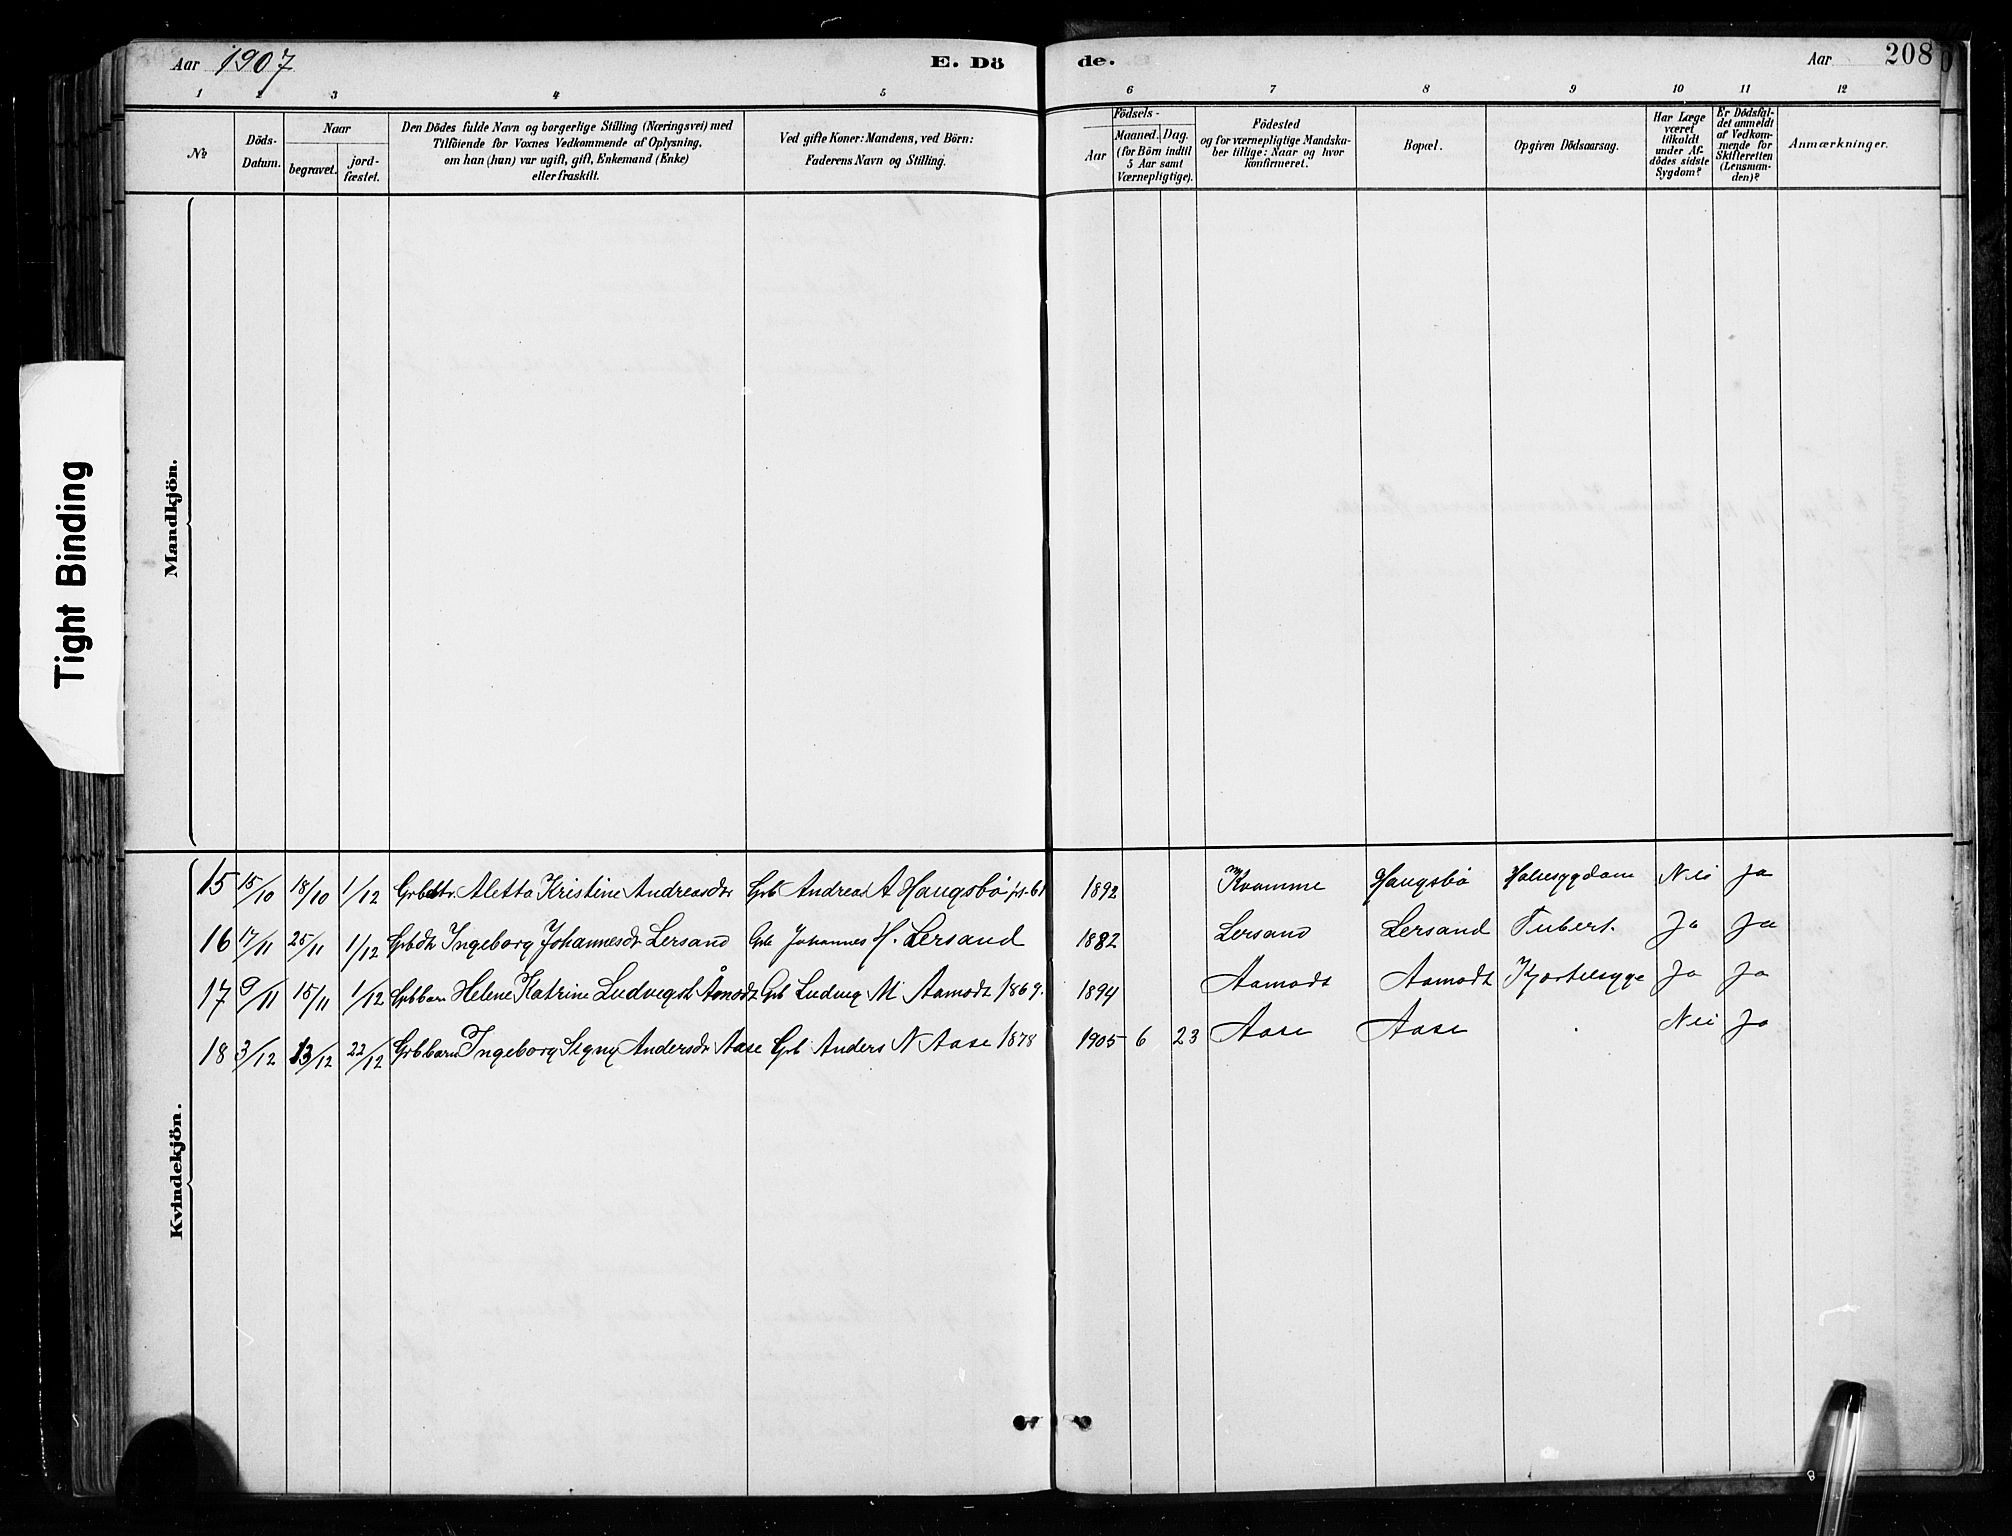 Aar 1907
E. Dö
de.
Aar
208
1 2 3 4 5 6 7 8 9 10 11 12
No
Döds-
Datum.
Naar
begravet.
jord-
fæstet.
Den Dödes fulde Navn og borgerlige Stilling (Næringsvei) med
Tilföiende for Voxnes Vedkommende af Oplysning,
om han (hun) var ugift, gift, Enkemand (Enke)
eller fraskilt.
Ved gifte Koner: Mandens, ved Börn:
Faderens Navn og Stilling.
Födsels-
Aar
Maaned. Dag.
(for Börn indtil
5 Aar samt
Værnepligtige).
Födested
og for værnepligtige Mandska-
ber tillige: Naar og hvor
konfirmeret.
Bopæl.
Opgiven Dödsaarsag.
Har Læge
været
tilkaldt
under Af-
dödes sidste
Sygdom?
Er Dödsfal-
det anmeldt
af Vedkom-
mende for
Skifteretten
(Lensman-
den)?
Anmærkninger.
Mandkjön.
Tight Binding
Kvindekjön.
15 15/10 18/10 1/12 Aletta Kristine Andreasdtr Grb Andreas A Haugsbö 61 1892 Kvamme Haugsbö Nei Ja
16 17/11 25/11 1/12 Grbdtr Ingeborg Johannesdtr Lersand Grb Johannes H. Lersand 1882 Lersand Lersand Tubert. Ja Ja
17 9/11 15/11 1/12 Grbbarn Helene Katrine Ludvigsdtr Åmodt Grb Ludvig M Aamodt 1869. 1894 Aamodt Aamodt Kjertelsyge Ja Ja
18 3/12 13/12 22/12 Grbbarn Ingeborg Signy Andersdtr Aase Grb Anders N Aase 1878 1905 6 23 Aase Aase Nei Ja
8